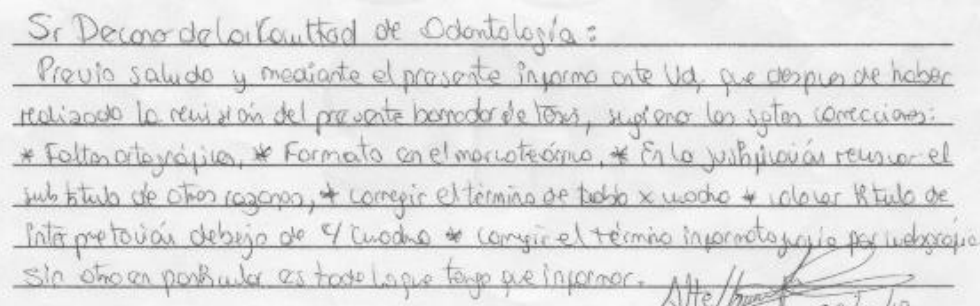 Sr Decano de la Facultad de Odontología:
Previo saludo y mediante el presente informo ante Ud, que despues de haber
realizado la revisión del presente borrador de Tesis, sugiero las sgtes correcciones:
* Faltas ortográficas, * Formato en el marco teórico, * En la justificación revisar el
sub titulo de otras razones, * corregir el término de tabla x cuadro * colocar titulo de
interpretación debajo de c/ cuadro * corregir el término informatografía por webgrafía
Sin otro en particular es todo lo que tengo que informar. Atte